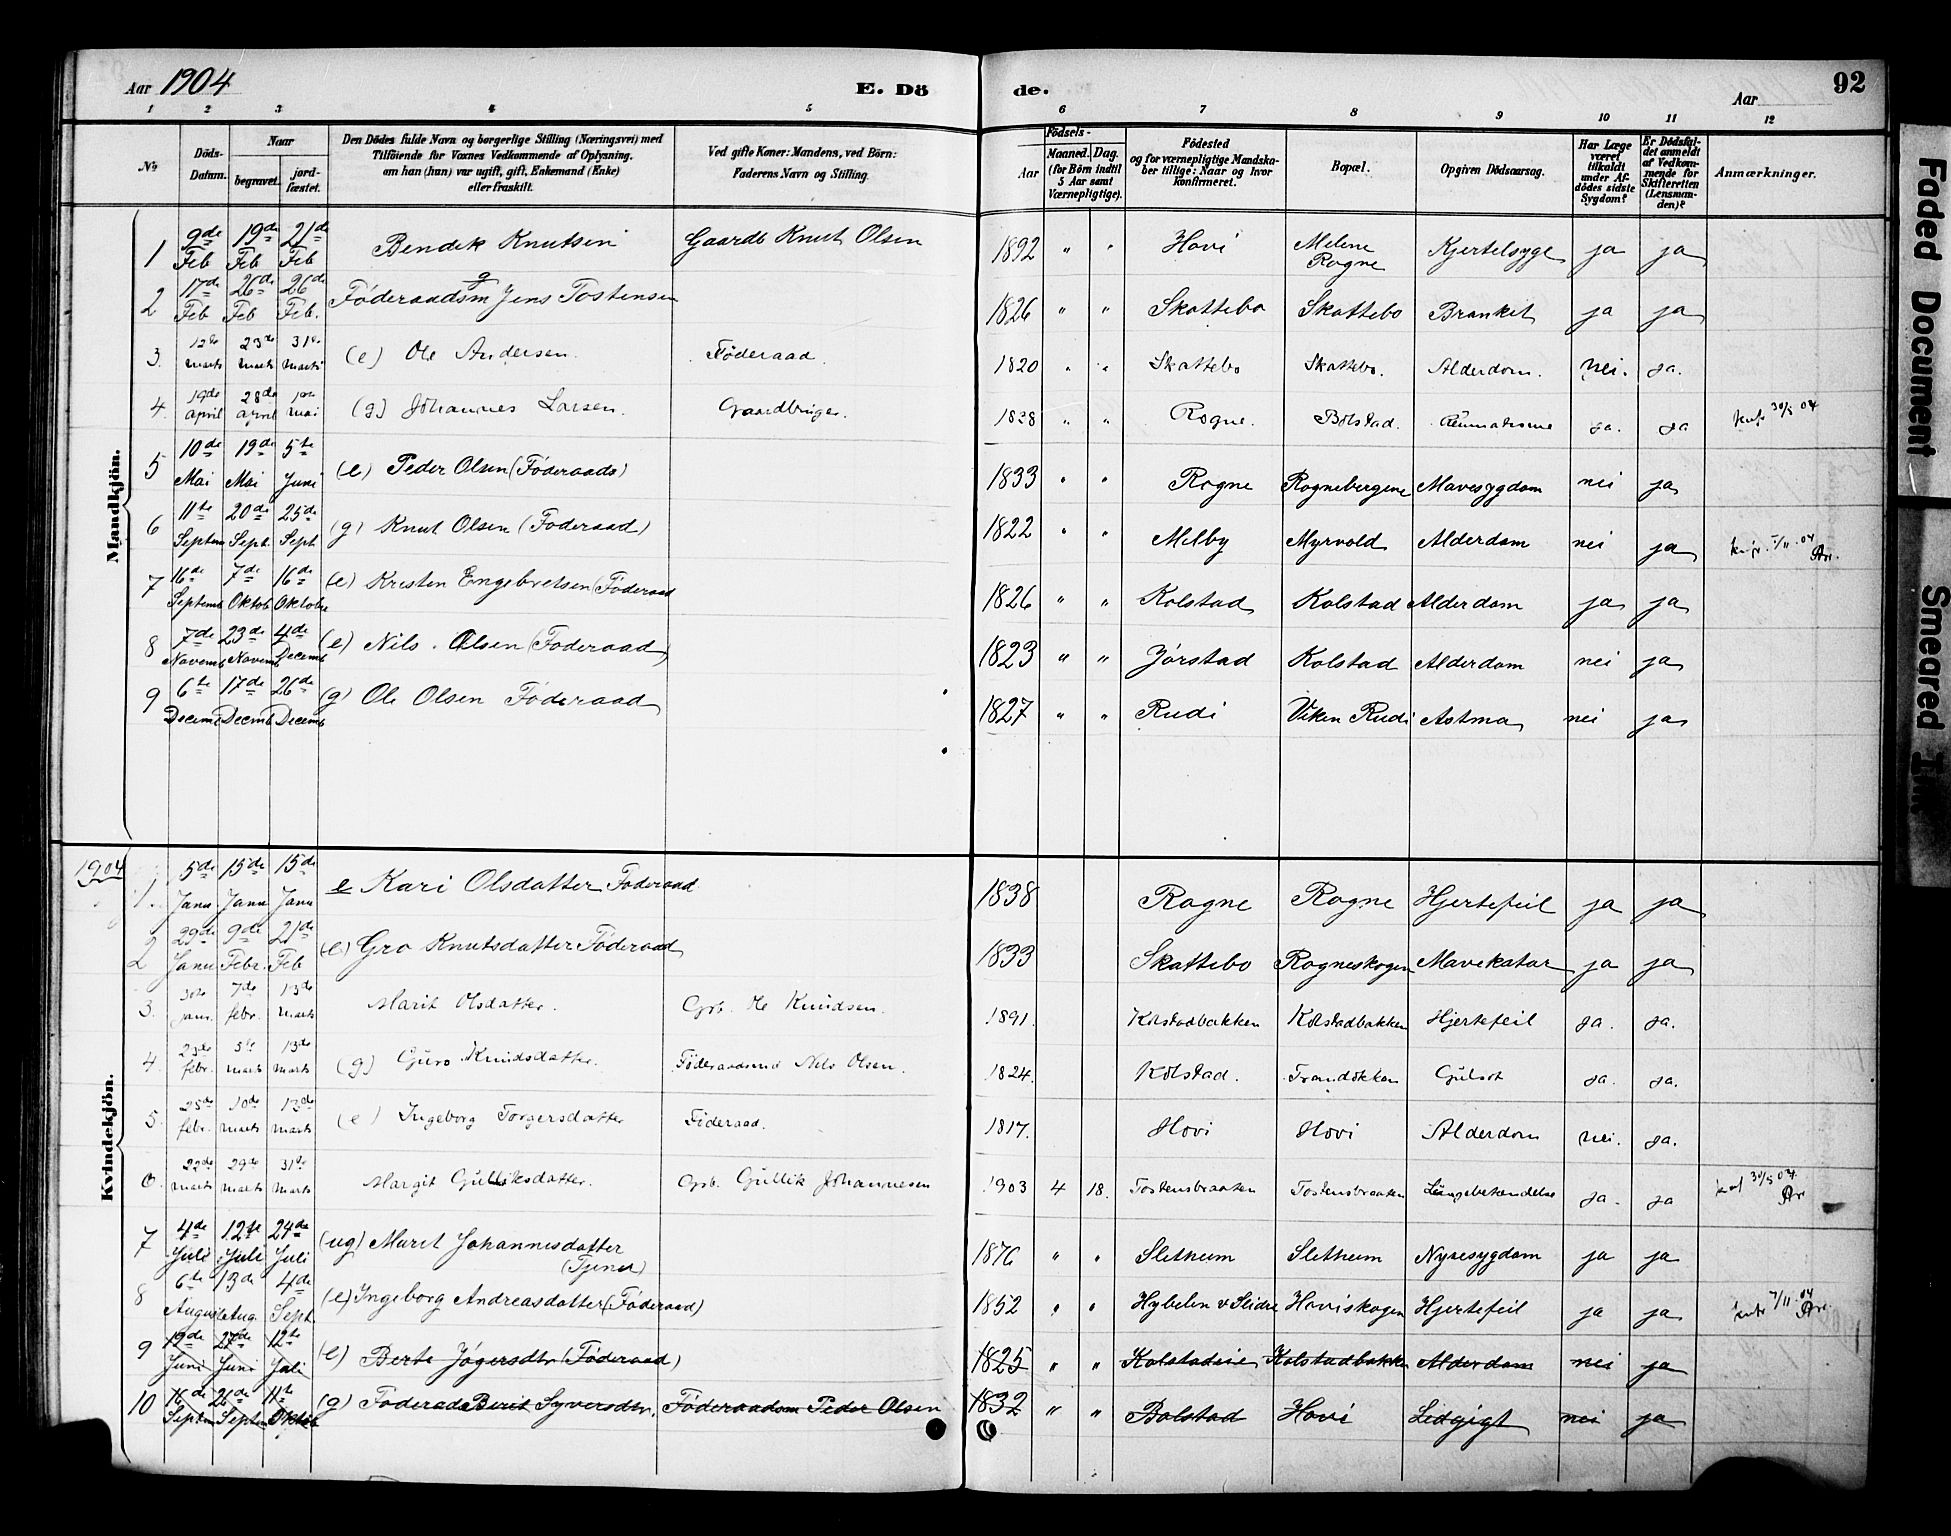 Aar 1904
E. Dö
de.
Aar
92
1 2 3 4 5 6 7 8 9 10 11 12
No.
Döds-
Datum.
Naar
begravet.
jord-
fæstet.
Den Dödes fulde Navn og borgerlige Stilling (Næringsvei) med
Tilföiende for Voxnes Vedkommende af Oplysning,
om han (hun) var ugift, gift, Enkemand (Enke)
eller fraskilt.
Ved gifte Koner: Mandens, ved Börn:
Faderens Navn og Stilling.
Födsels-
Aar
Maaned. Dag.
(for Börn indtil
5 Aar samt
Værnepligtige).
Födested
og for værnepligtige Mandska-
ber tillige: Naar og hvor
Konfirmeret.
Bopæl.
Opgiven Dödsaarsag.
Har Læge
været
tilkaldt
under Af-
dödes sidste
Sygdom?
Er Dödsfal-
det anmeldt
af Vedkom-
mende for
Skifteretten
(Lensman-
den)?
Anmærkninger.
Mandkjön.
1 9de Feb 19de Feb 21de Feb Bendik Knutsen Gaardb Knut Olsen 1892 " " Hovi Melene Rogne Kjertelsyge ja ja
2 17de Feb 26de Feb 26de Feb. g Föderaadsm Jens Tostensen 1826 " " Skattebo Skattebo Brankit ja ja
3. 12te marts 23de marts 31te marts (e) Ole Andersen. Föderaad. 1820 " " Skattebo Skattebo. Alderdom. nei. ja.
4. 19de april 28de april 1ste mai (g) Johannes Larsen. Gaardbruger. 1838 " " Rogne. Bolstad. Reumatisme ja. ja 30/5 04
5 10de Mai 19de Mai 5te Juni (e) Peder Olsen (Föderaads) 1833 " " Rogne Rognebergene Mavesygdom nei ja
6 11te Septem 20de Sept. 25de Sept (g) Knut Olsen (Föderaad) 1822 " " Melby Myrvold Alderdom nei ja 7/11.04
7 16de Septemb 7de Oktob 16de Oktober (e) Kristen Engebretsen (Föderaad 1826 " " Kolstad Kolstad Alderdom ja ja
8 7de Novemb 23de Novem 4de Decemb (e) Nils Olsen (Föderaad) 1823 " " Jörstad Kolstad Alderdom nei ja
9 6te Decemb 17de Decemb 26de Decemb (g) Ole Olsen Föderaad 1827 " " Rudi Viken Rudi Astma nei ja
1904
Kvindekjön.
1. 5de Janu 15de Janu 15de Janu e Kari Olsdatter Föderaad 1838 Rogne Rogne Hjertefeil ja ja
2 29de Janu 9de Febr. 21de Feb (e) Gro Knutsdatter Föderaad 1833 Skattebo Rogneskogen Mavekatar ja ja
3. 30te jan. 7de febr. 13de marts Marit Olsdatter. Grb. Ole Knudsen. 1891. Kolstadbakken Kolstadbakken Hjertefeil ja. ja.
4. 23de febr. 5te marts 13de marts (g) Guro Knudsdatter. Föderaadsmd Nils Olsen. 1824. Kolstad. Gulsot ja. ja.
5. 25de febr. 10de marts 13de marts (e) Ingeborg Torgersdatter Föderaad. 1817. Hovi Hovi Alderdom nei. ja.
6. 22de marts 29de marts 31te marts Margit Gulliksdatter. Grb. Gullik Johannesen 1903 4 18. Tostensbraaten Tostensbraaten Lungebetændelse ja. ja 30/5 04
7 4de Juli 12te Juli 24de Juli (ug) Marit Johannesdatter (Tjener) 1876 " " Sletheim Sletheim Nyresygdom ja ja
8 6te August 13de Aug. 4de Sept. (e) Ingeborg Andreasdatter (Föderaad) 1852 " " Hybelen v Slidre Hoviskogen Hjertefeil ja ja 7/11.04
9 19de Juni 27de Juni 12te Juli (e) Berte Jögersdtr (Föderaad) 1825 " " Kolstadeie Kolstadbakken Alderdom nei ja
10 16de Septem 26de Septem 11te Oktob (g) Föderads Berit Syversdtr. Föderaadsm Peder Olsen 1832 " " Bolstad Hovi Ledgigt nei ja
Faded Document
Smeared